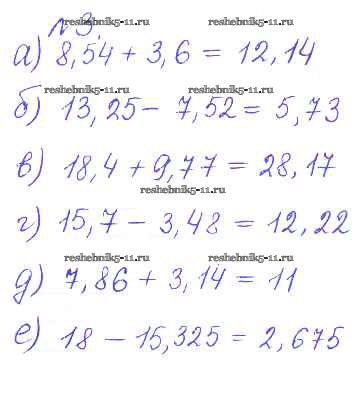 reshebnik5-11.ru reshebnik5-11.ru
№3.
а) 8,54 + 3,6 = 12,14
reshebnik5-11.ru reshebnik5-11.ru
б) 13,25 - 7,52 = 5,73
в) 18,4 + 9,77 = 28,17
reshebnik5-11.ru
г) 15,7 - 3,48 = 12,22
reshebnik5-11.ru reshebnik5-11.ru
д) 7,86 + 3,14 = 11
е) 18 - 15,325 = 2,675